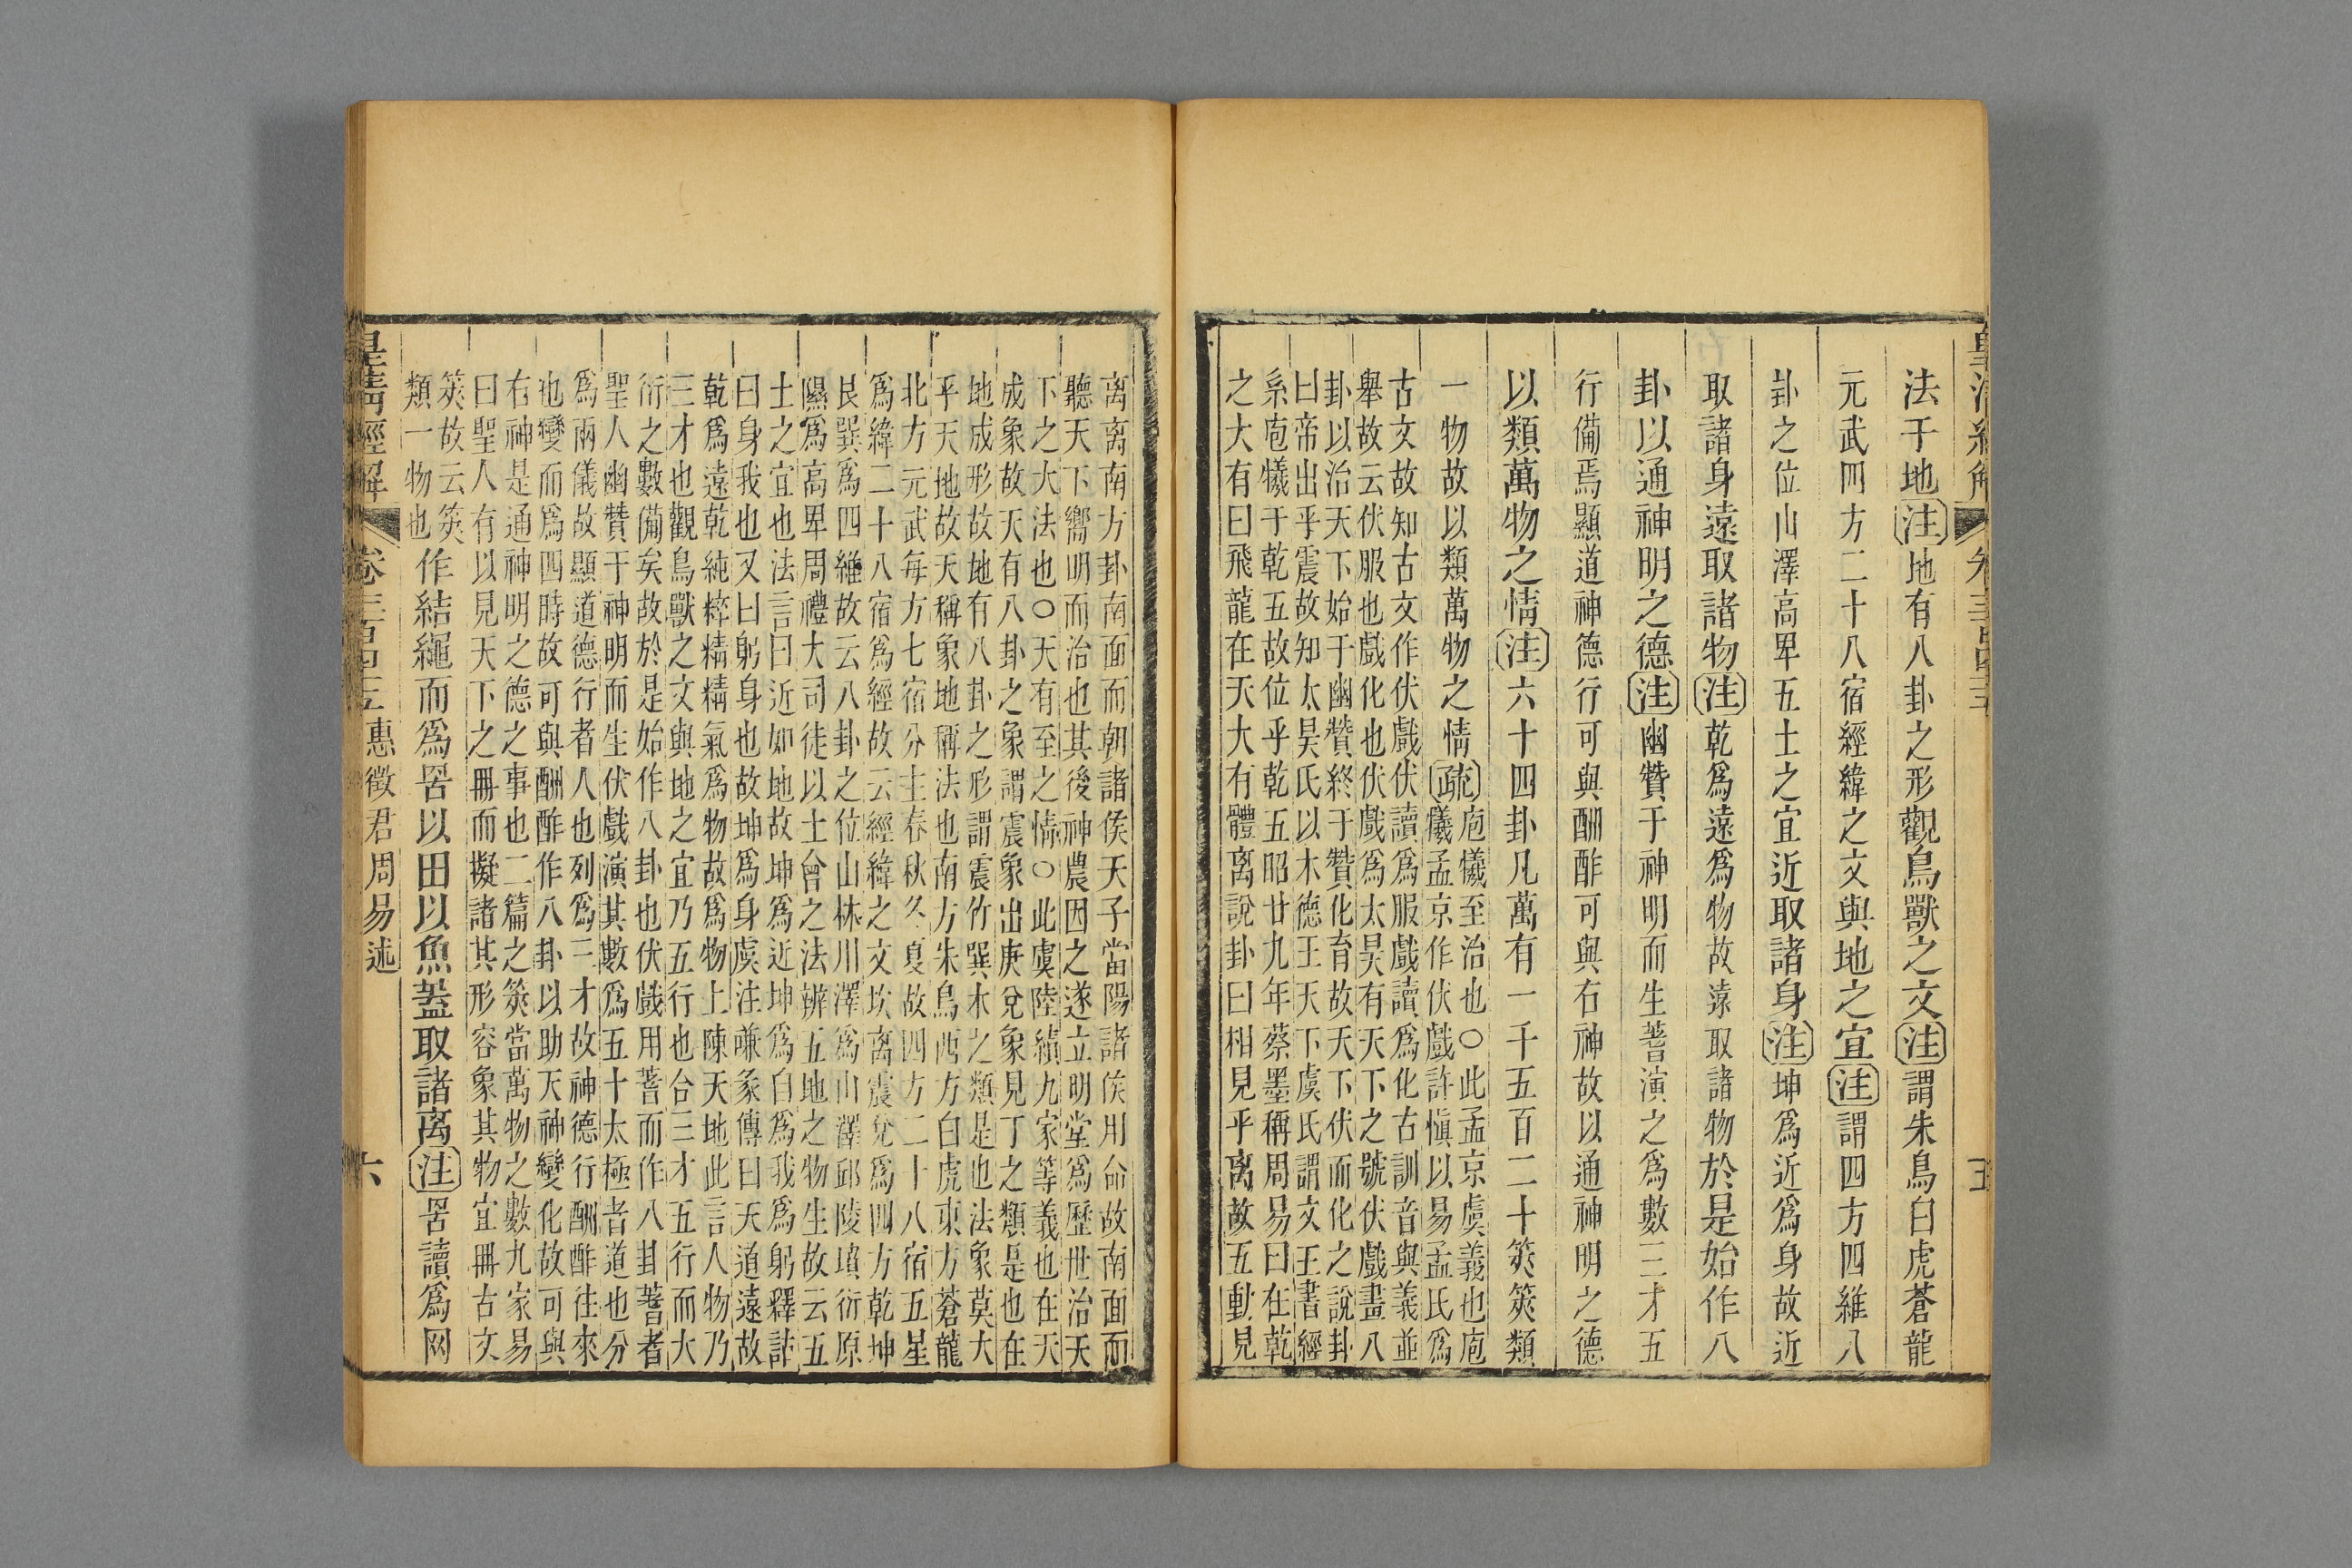 皇清經解 卷三百四十五 五
法于地注地有八卦之形觀鳥獸之文注謂朱鳥白虎蒼龍
元武四方二十八宿經緯之文與地之宜注謂四方四維八
卦之位山澤高卑五土之宜近取諸身注坤爲近爲身故近
取諸身遠取諸物注乾爲遠爲物故遠取諸物於是始作八
卦以通神明之德注幽贊于神明而生蓍演之爲數三才五
行備焉顯道神德行可與酬酢可與右神故以通神明之德
以類萬物之情注六十四卦凡萬有一千五百二十筴筴類
一物故以類萬物之情疏庖犧至治也○此孟京虞義也庖
犧孟京作伏戲許愼以易孟氏爲
古文故知古文作伏戲伏讀爲服戲讀爲化古訓音與義並
舉故云伏服也戲化也伏戲爲太昊有天下之號伏戲畫八
卦以治天下始于幽贊終于贊化育故天下伏而化之說卦
曰帝出乎震故知太昊氏以木德王天下虞氏謂文王書經
系庖犧于乾五故位乎乾五昭廿九年蔡墨稱周易曰在乾
之大有曰飛龍在天大有體离說卦曰相見乎离故五動見
离离南方卦南面而朝諸侯天子當陽諸侯用命故南面而
聽天下嚮明而治也其後神農因之遂立明堂爲歷世治天
下之大法也○天有至之情○此虞陸績九家等義也在天
成象故天有八卦之象謂震象出庚兌象見丁之類是也在
地成形故地有八卦之形謂震竹巽木之類是也法象莫大
乎天地故天稱象地稱法也南方朱鳥西方白虎東方蒼龍
北方元武每方七宿分主春秋冬夏故四方二十八宿五星
爲緯二十八宿爲經故云經緯之文坎离震兌爲四方乾坤
艮巽爲四維故云八卦之位山林川澤爲山澤邱陵墳衍原
隰爲高卑周禮大司徒以土會之法辨五地之物生故云五
土之宜也法言曰近如地故坤爲近坤爲自爲我爲躬釋詁
曰身我也又曰躬身也故坤爲身虞注嗛彖傳曰天道遠故
乾爲遠乾純粹精精氣爲物故爲物上陳天地此言人物乃
三才也觀鳥獸之文與地之宜乃五行也合三才五行而大
衍之數備矣故於是始作八卦也伏戲用蓍而作八卦蓍者
聖人幽贊于神明而生伏戲演其數爲五十太極者道也分
爲兩儀故顯道德行者人也列爲三才故神德行酬酢往來
也變而爲四時故可與酬酢作八卦以助天神變化故可與
右神是通神明之德之事也二篇之筴當萬物之數九家易
曰聖人有以見天下之冊而擬諸其形容象其物宜冊古文
筴故云筴
類一物也作結繩而爲罟以田以魚蓋取諸离注罟讀爲网
皇清經解 卷三百四十五惠徵君周易述 六